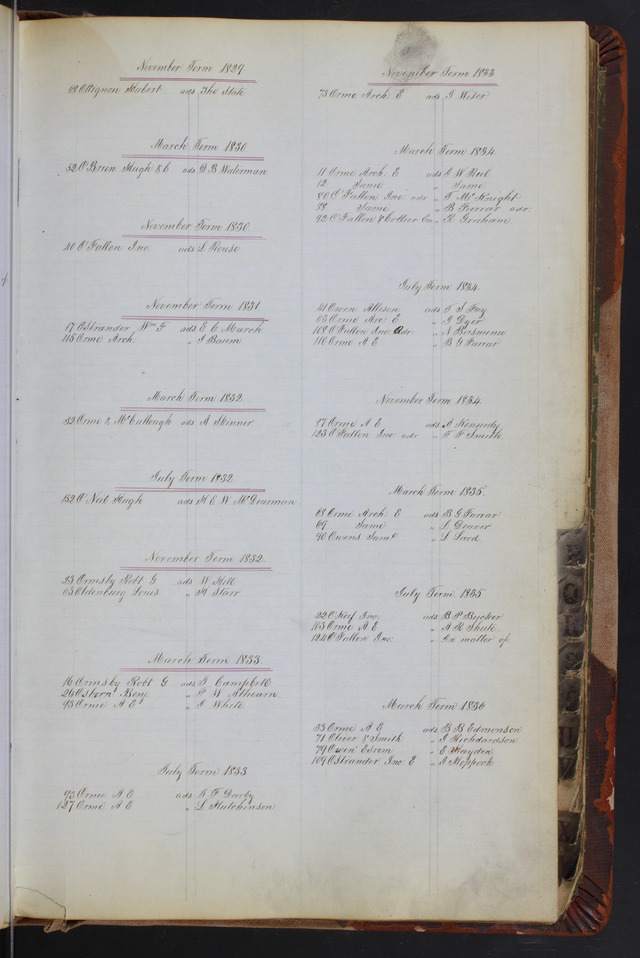 November Term 1829
68 Ottignon Hubert ads The State
March Term 1830
52 O'Brien Hugh &c ads D B Waterman
November Term 1830
40 O'Fallon Jno ads L Rouse
November Term 1831
17 Ostrander Wm F ads E C March
115 Orme Arch " J Baum
March Term 1832
32 Orme & McCullough ads A Skinner
July Term 1832
152 O'Neil Hugh ads H E W McDearman
November Term 1832
23 Ormsby Robt G ads W Hill
65 Oldenburg Louis " H Starr
March Term 1833
16 Ormsby Robt G ads J Campbell
26 Osborn Benj " P W Athearn
95 Orme A E " J White
July Term 1833
93 Orme A E ads W F Darby
127 Orme A E " L Hutchinson
November Term 1833
73 Orme Arch E ads J Wiser
March Term 1834
11 Orme Arch. E ads J W Reel
12 Same " Same
80 O'Fallon Jno adr " T McKnight
88 Same " B Farrar adr.
92 O'Fallon & Collier " R Graham
July Term 1834
41 Owen Allison ads T S Fay
63 Orme Arc. E " J Dyer
108 O'Fallon Jno Adr. " N
110 Orme A E " B G Farrar
November Term 1834
87 Orme A E ads A Kennedy
123 O'Fallon Jno adr " T F Smith
March Term 1835
68 Orme Arch E ads B G Farrar
69 Same " L Deaver
90 Owens Saml " L Lard
July Term 1835
22 O'Keif Jno ads B P
103 Orme A E " A R Shute
124 O'Fallon Jno " In matter of
March Term 1836
53 Orme A E ads B B Edmonson
71 Oliver & Smith " J Richdardson
79 Owen Esrom " E Hayden
109 Ostrander Jno E " J Koppock